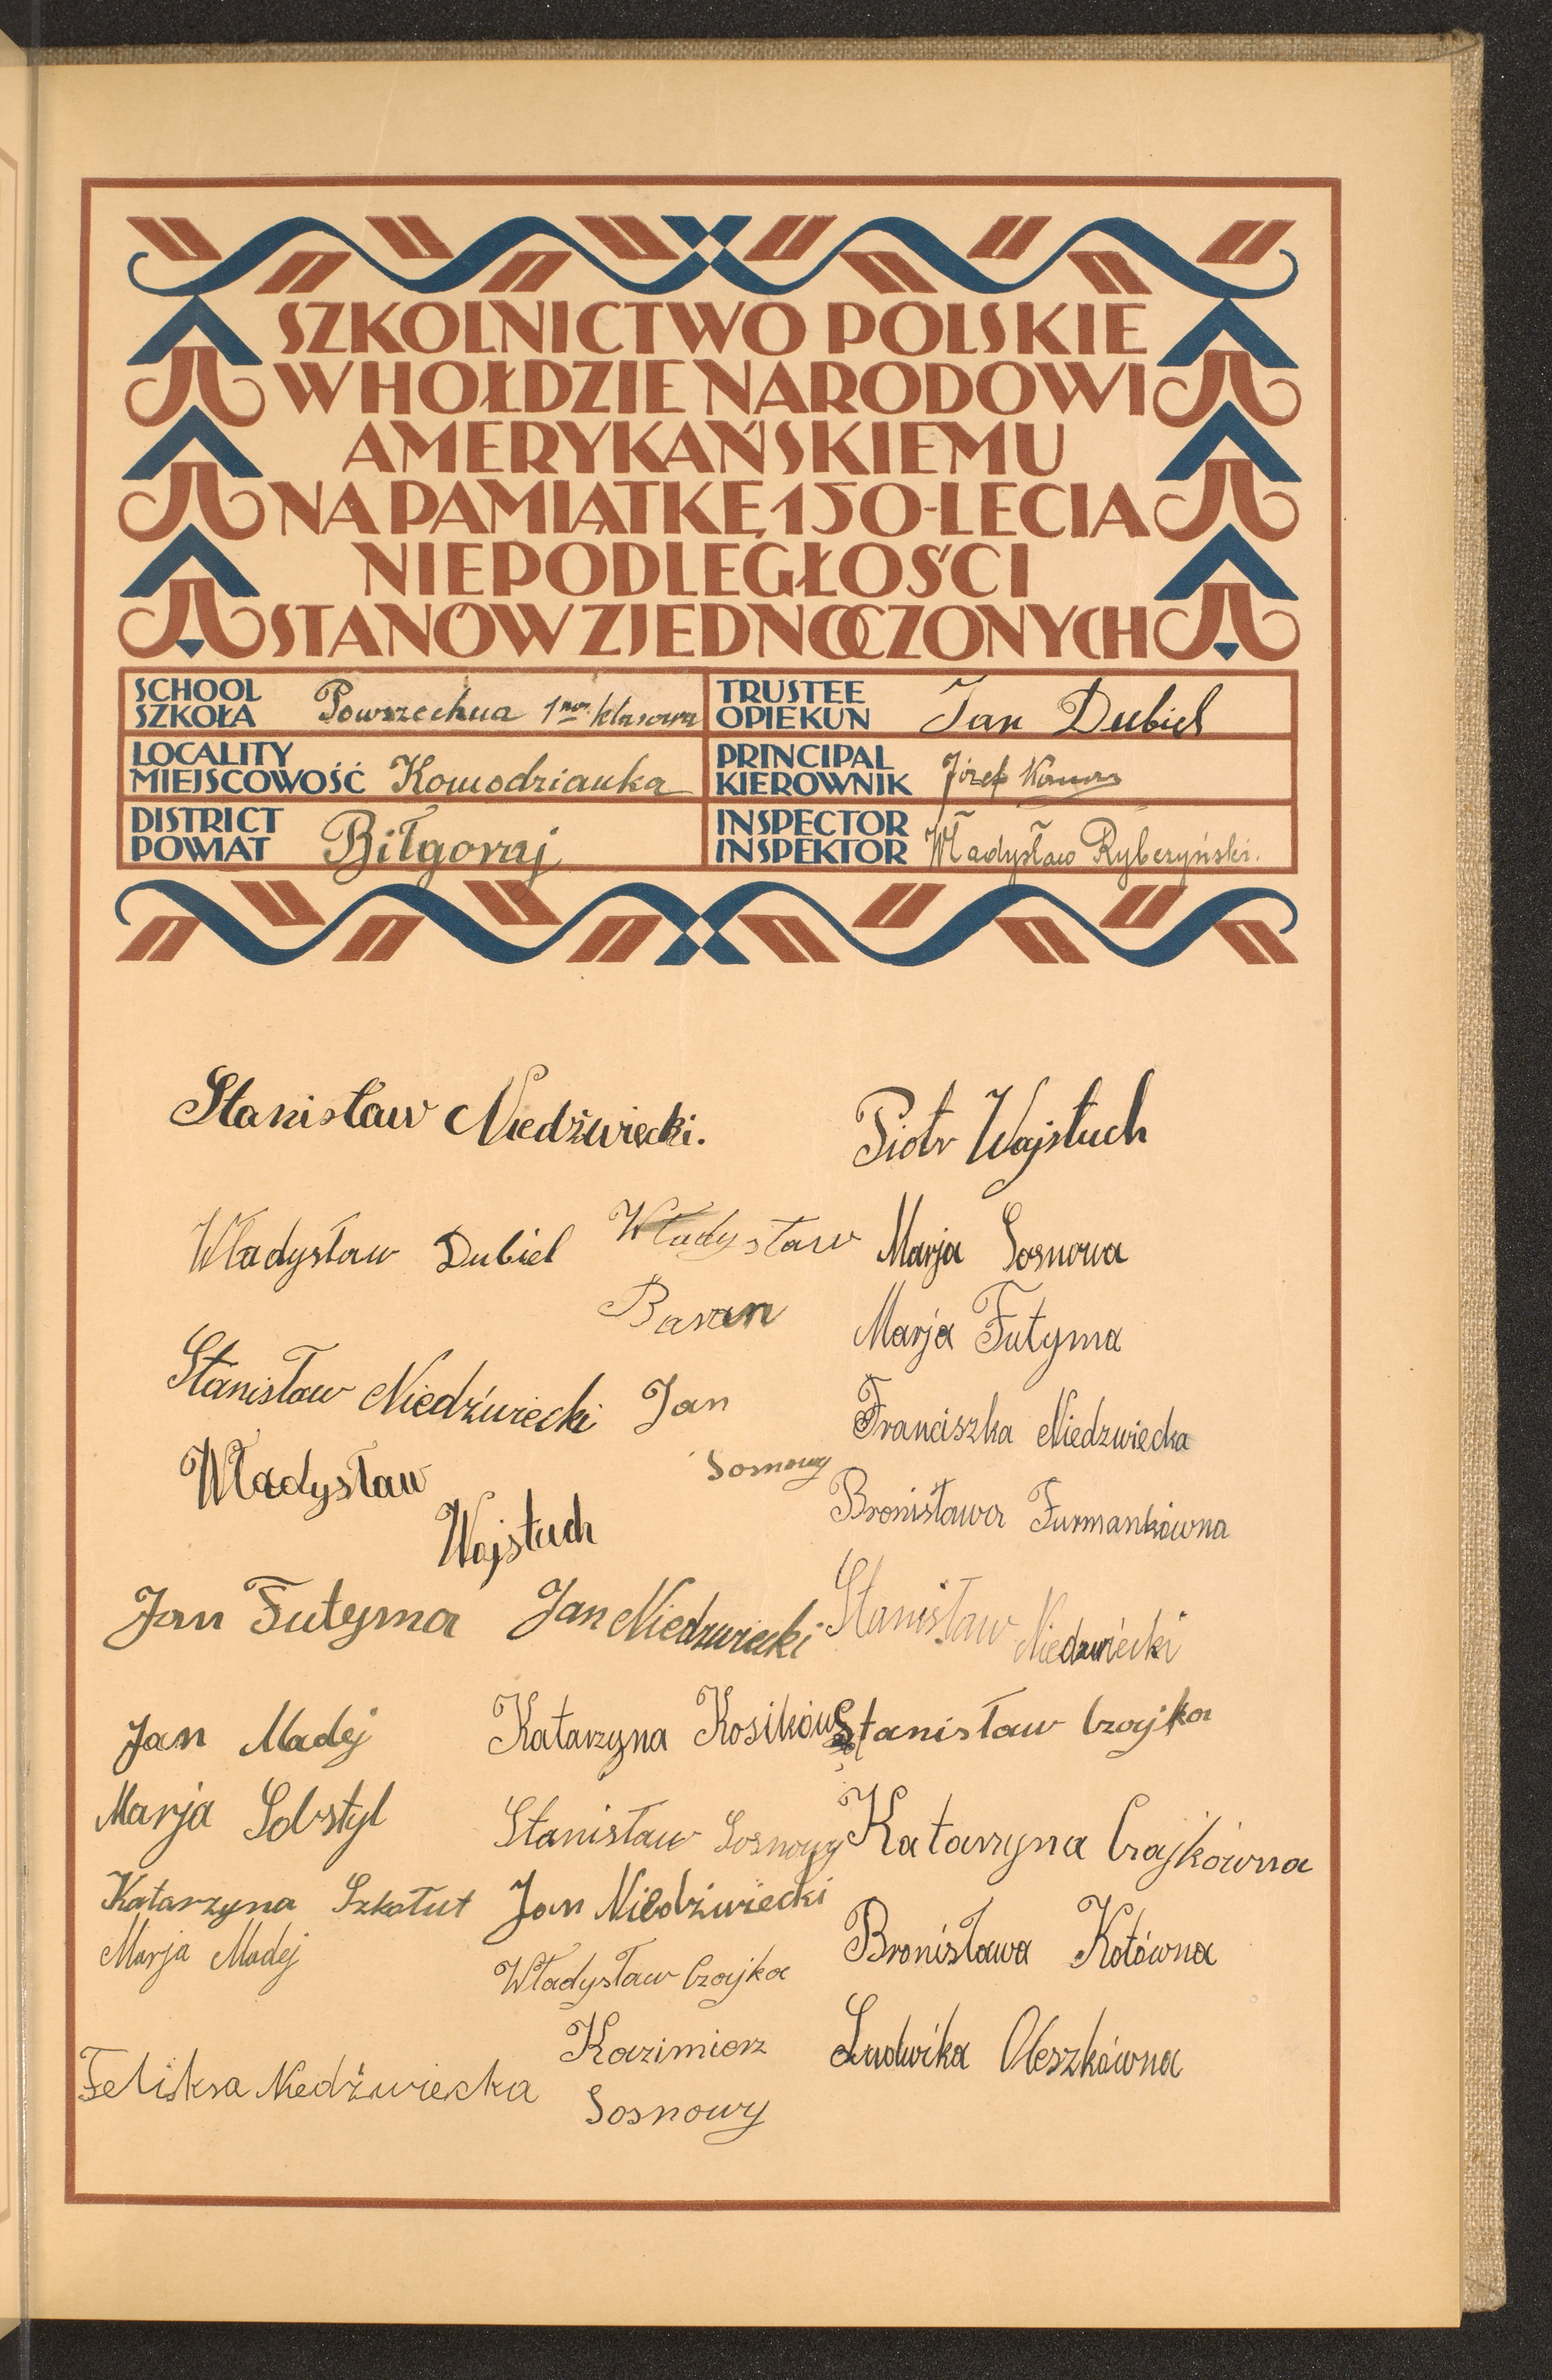 SZKOLNICTWO POLSKIE
W HOŁDZIE NARODOWI
AMERYKAŃSKIEMU
NA PAMIĄTKĘ 150-LECIA
NIEPODLEGŁOŚCI
STANÓW ZJEDNOCZONYCH
SCHOOL
SZKOŁA Powszechna 1no klasowa
TRUSTEE
OPIEKUN Jan Dubiel
LOCALITY
MIEJSCOWOŚĆ Komodzianka
PRINCIPAL
KIEROWNIK Józef
DISTRICT
POWIAT Biłgoraj
INSPECTOR
INSPEKTOR Władysław Ryberzyński.
Stanisław Niedźwiecki.
Władysław Dubiel
Władysław
Baran
Stanisław Niedźwiecki
Jan
Sosnowy
Władysław
Wojstuch
Jan Futyma
Jan Niedzwiecki
Jan Madej
Katarzyna Kosikówna
Marja Sobstyl
Stanisław Sosnowy
Katarzyna Szkołut
Jan Niedźwiecki
Marja Madej
Władysław Czajka
Kazimierz
Sosnowy
Feliksa Niedźwiecka
Piotr Wojstuch
Marja Sosnowa
Marja Futyma
Franciszka Niedzwiecka
Bronisława Furmankówna
Stanisław Niedzwiecki
Stanisław Czajka
Katarzyna Czajkówna
Bronisława Kotówna
Ludwika Oleszkówna